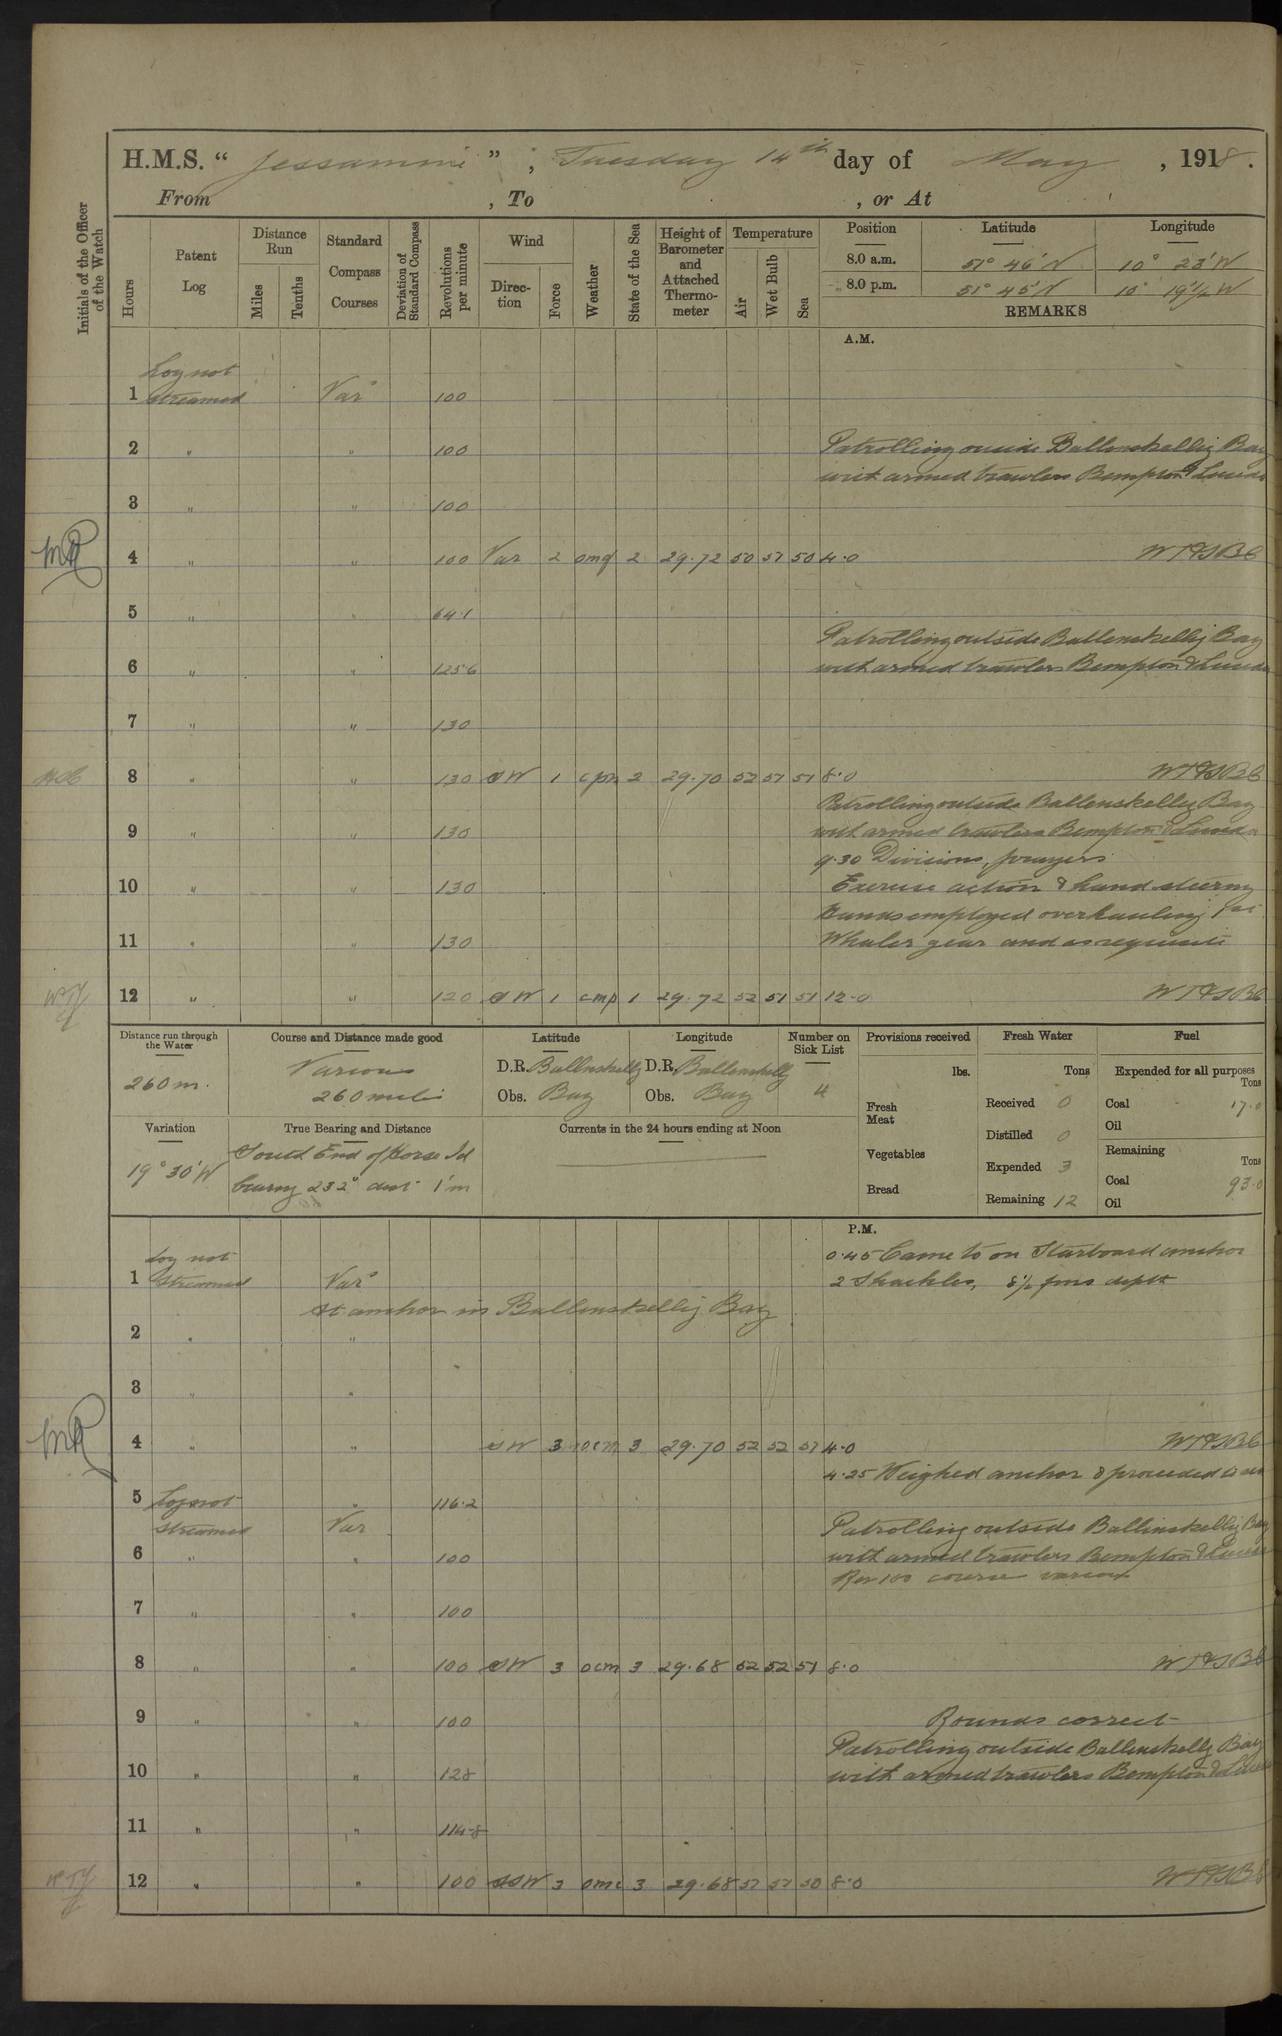 H.M.S. “ Jessamine ” ; Tuesday 14th day of May , 1918 .
From , To , or At
Initials of the Officer of the Watch
Hours
Patent Log
Distance Run
Miles
Tenths
Standard Compass Courses
Deviation of Standard Compass
Revolutions per minute
Wind
Direction
Force
Weather
State of the Sea
Height of Barometer and Attached Thermometer
Temperature
Air
Wet Bulb
Sea
Position Latitude Longitude
8.0 a.m. 51° 46' N 10° 23' W
8.0 p.m. 51° 45' N 10° 19½ W
REMARKS
A.M.
Log not
1 streamed Var° 100
2 " " 100 Patrolling outside Ballinskellig Bay
with armed trawlers Bempton &
3 " " 100
4 " " 100 Var 2 omq 2 29.72 50 51 50 4.0
5 " " 64.1
Patrolling outside Ballenskellig Bay
6 " " 125.6 with armed trawlers Bempton &
7 " " 130
8 " " 130 SW 1 2 29.70 52 51 51 8.0
Patrolling outside Ballenskellig Bay
9 " " 130 with armed trawlers Bempton &
9.30 Divisions, prayers
10 " " 130 Exercise action & hand steering
Hands employed overhauling
11 " " 130 Whaler gear and as requisite
12 " " 120 SW 1 cmp 1 29.72 52 51 51 12.0
Distance run through the Water
260 m.
Course and Distance made good
Various
260 miles
Latitude
D.R. Ballnskellig
Obs. Bay
Longitude
D.R. Ballenskellig
Obs. Bay
Number on Sick List
4
Variation
19° 30' W
True Bearing and Distance
South End of Horse Id
bearing 232° dist 1'm
Currents in the 24 hours ending at Noon
Provisions received
lbs.
Fresh Meat
Vegetables
Bread
Fresh Water
Tons
Received 0
Distilled 0
Expended 3
Remaining 12
Fuel
Expended for all purposes
Tons
Coal 17.0
Oil
Remaining
Tons
Coal 93.0
Oil
P.M.
Log not 0.45 Came to on Starboard anchor
1 streamed Var° 2 Shackles, fms depth
At anchor in Ballinskellig Bay
2 " "
3 " "
4 " " SW 3 ocm 3 29.70 52 52 51 4.0
4.25 Weighed anchor & proceeded to sea
5 Log not " 116.2
streamed Var Patrolling outside Ballinskellig Bay
6 " " 100 with armed trawlers Bempton &
Rev 100 course various
7 " " 100
8 " " 100 SW 3 ocm 3 29.68 52 52 51 8.0
9 " " 100 Rounds correct
Patrolling outside Ballenskellig Bay
10 " " 128 with armed trawlers Bempton &
11 " " 114.8
12 " " 100 SSW 3 omc 3 29.68 51 51 50 8.0